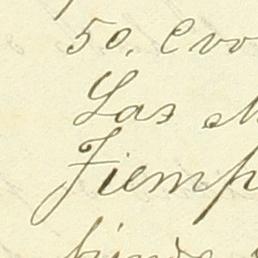 50. Evo
Las M
Tiemp